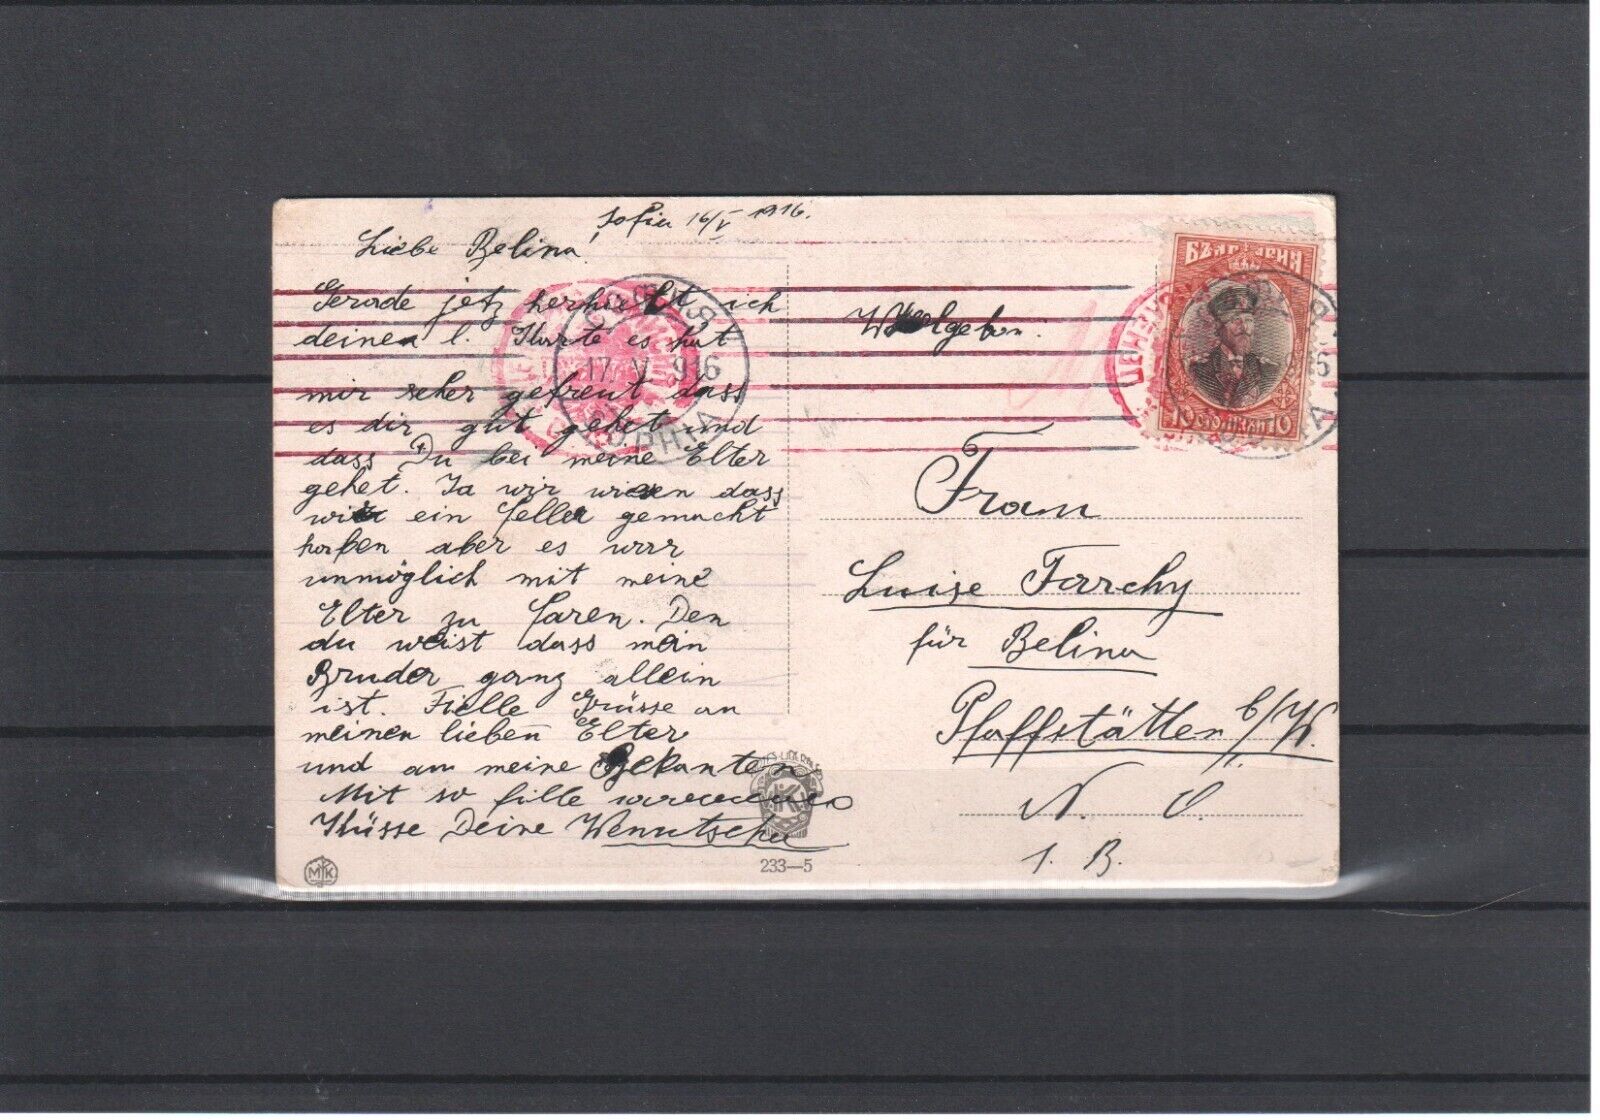 Sofia 16/V 1916.
Liebe Belina!
Gerade jetz ich
deinen l. Karte es hat
mir seher gefreut dass
es dir gut gehet und
dass Du bei meine Elter
gehet. Ja wir wissen dass
wir ein feller gemacht
haben aber es war
unmöglich mit meine
Elter zu faren. Den
du weist dass mein
Bruder ganz allein
ist. Fielle Grüsse an
meinen lieben Elter
und an meine Bekanten
Mit so fille
Küsse Deine Wenutscha
MK
233—5
17 V 916
СОФИЯ
SOPHIA
K
БЪЛГАРИЯ
10 СТОТИНКИ 10
Wohlgebor.
Frau
Luise Farchy
für Belina
Pfaffstätten b/W.
N. O.
1. B.